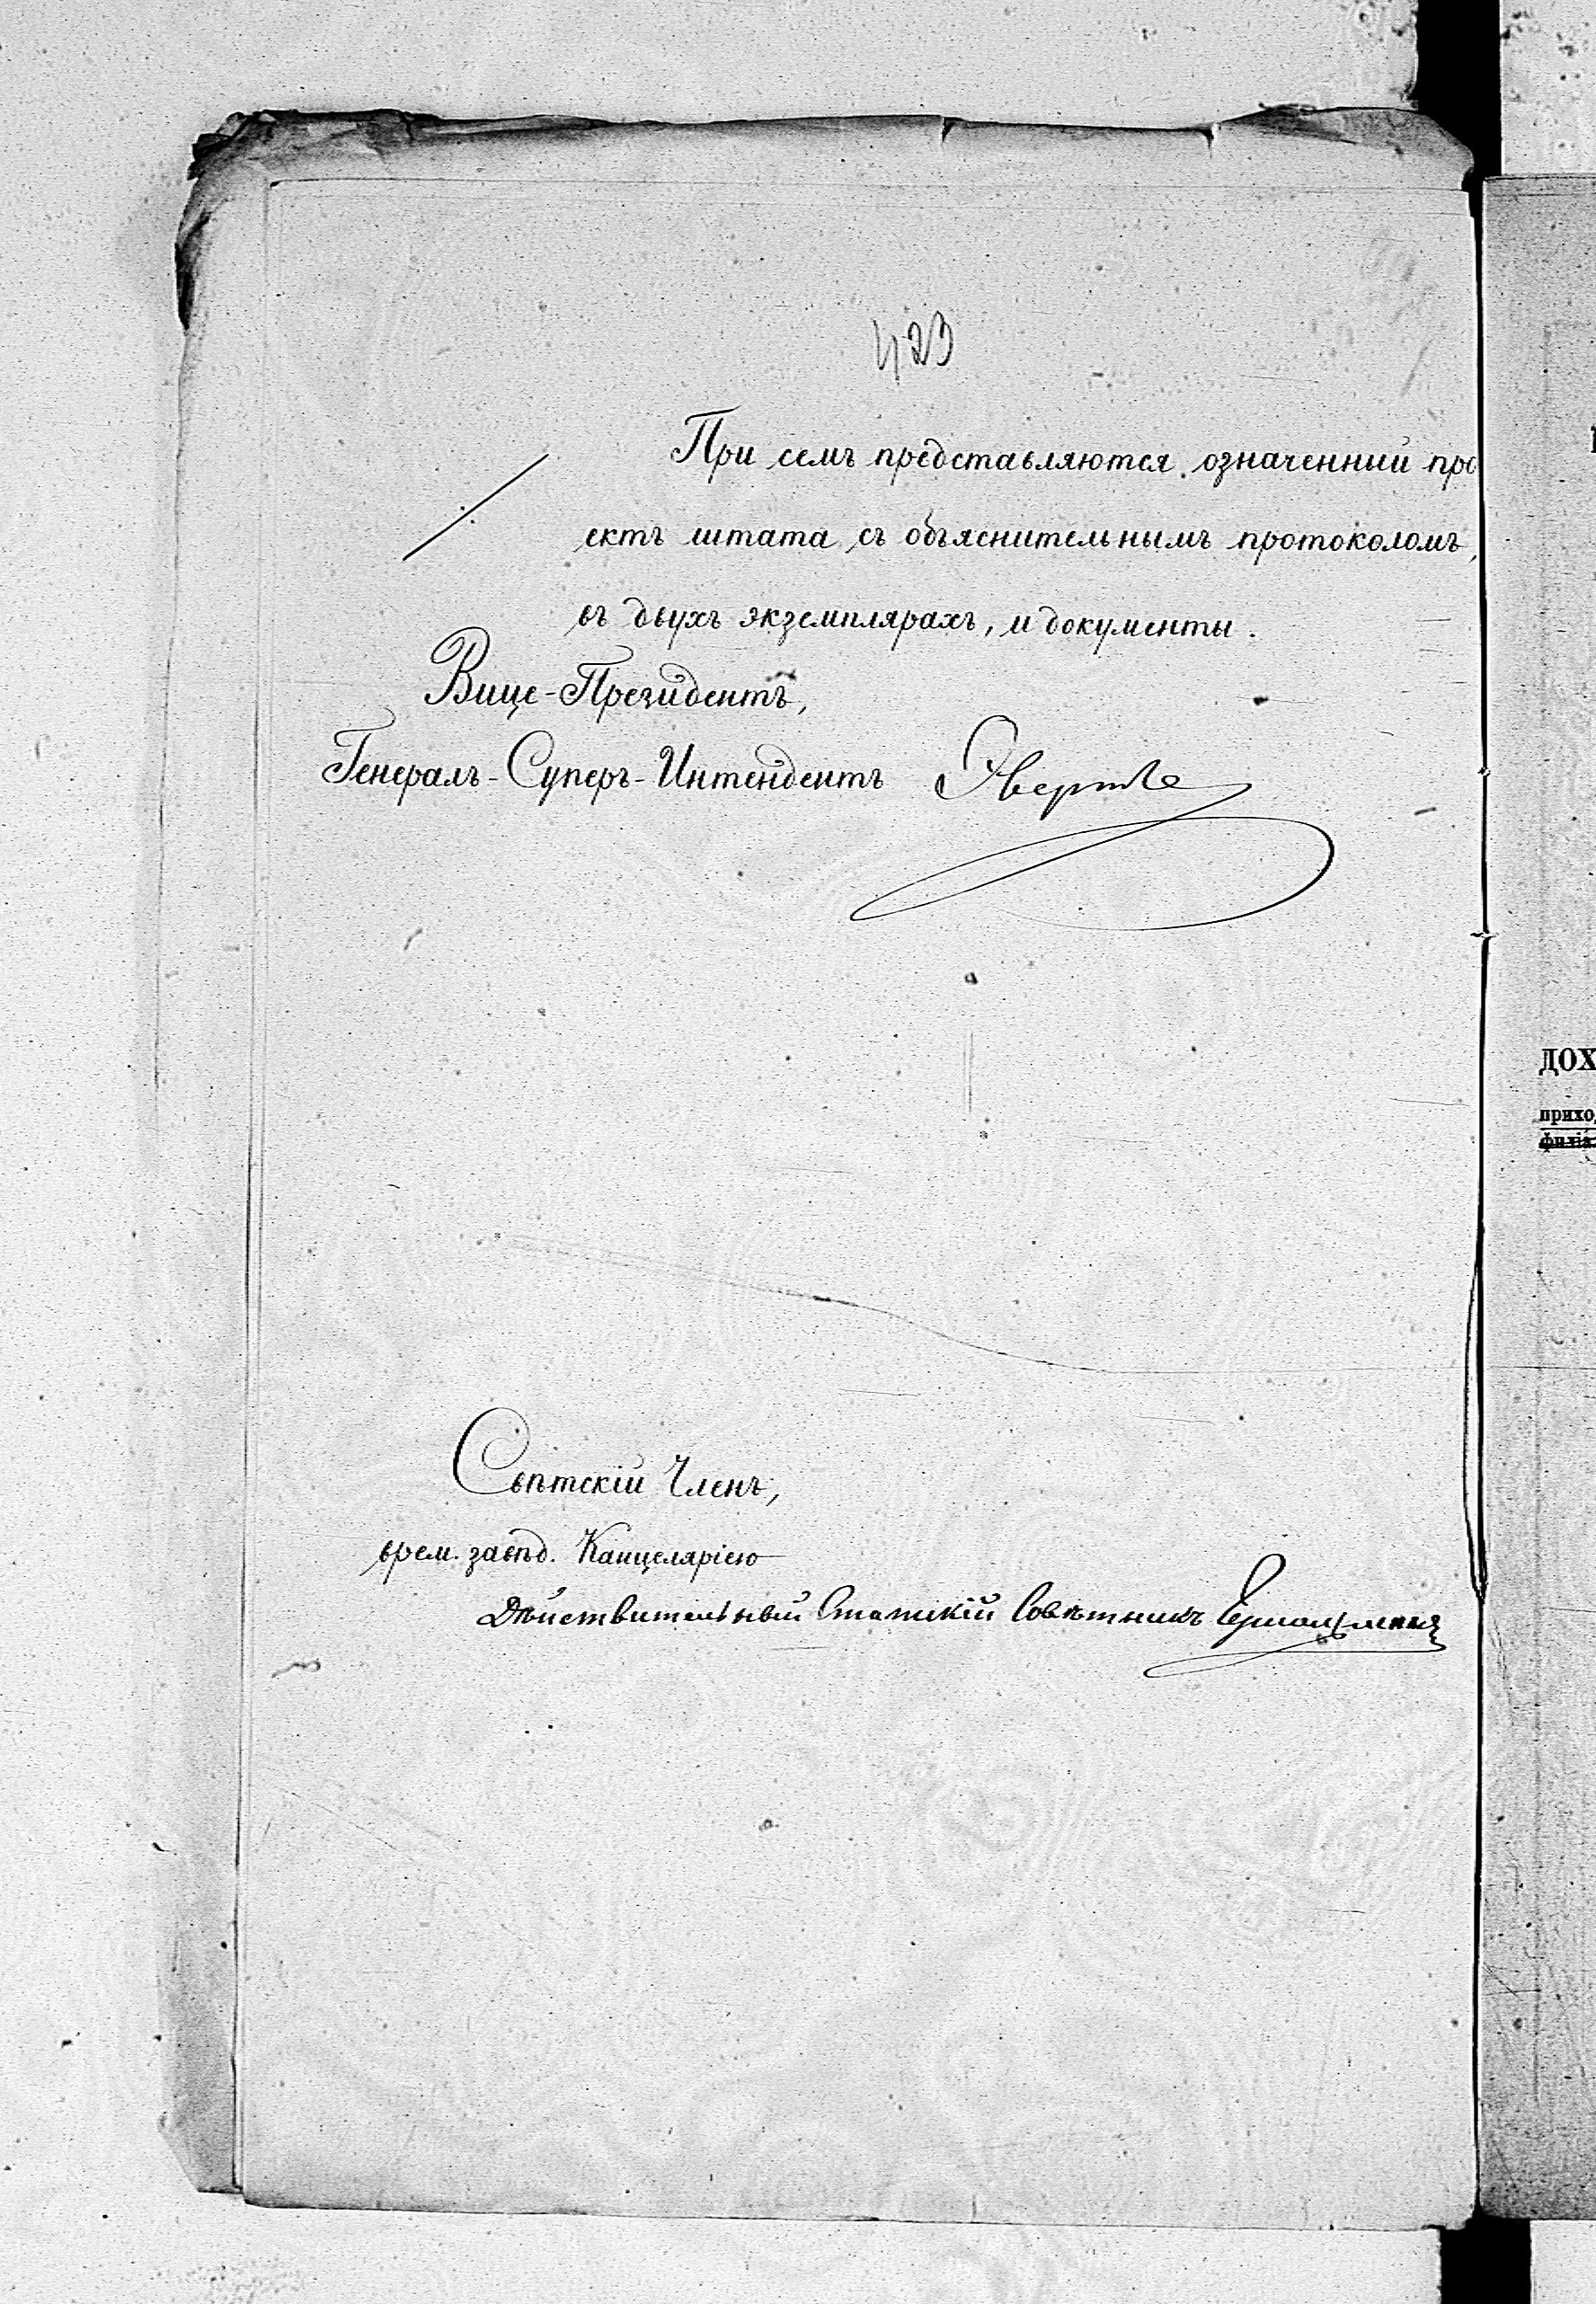 423
При семъ представляются означенный про
ектъ штата съ объяснительнымъ протоколомъ,
въ двухъ экземплярахъ, и документы.
Вице-Президентъ,
Генералъ-Суперъ-Интендентъ Эвертъ
Свѣтскій Членъ,
врем. завѣд. Канцеляріею
Дѣйствительный Статскій Совѣтникъ
ДОХ
прихо
филіа